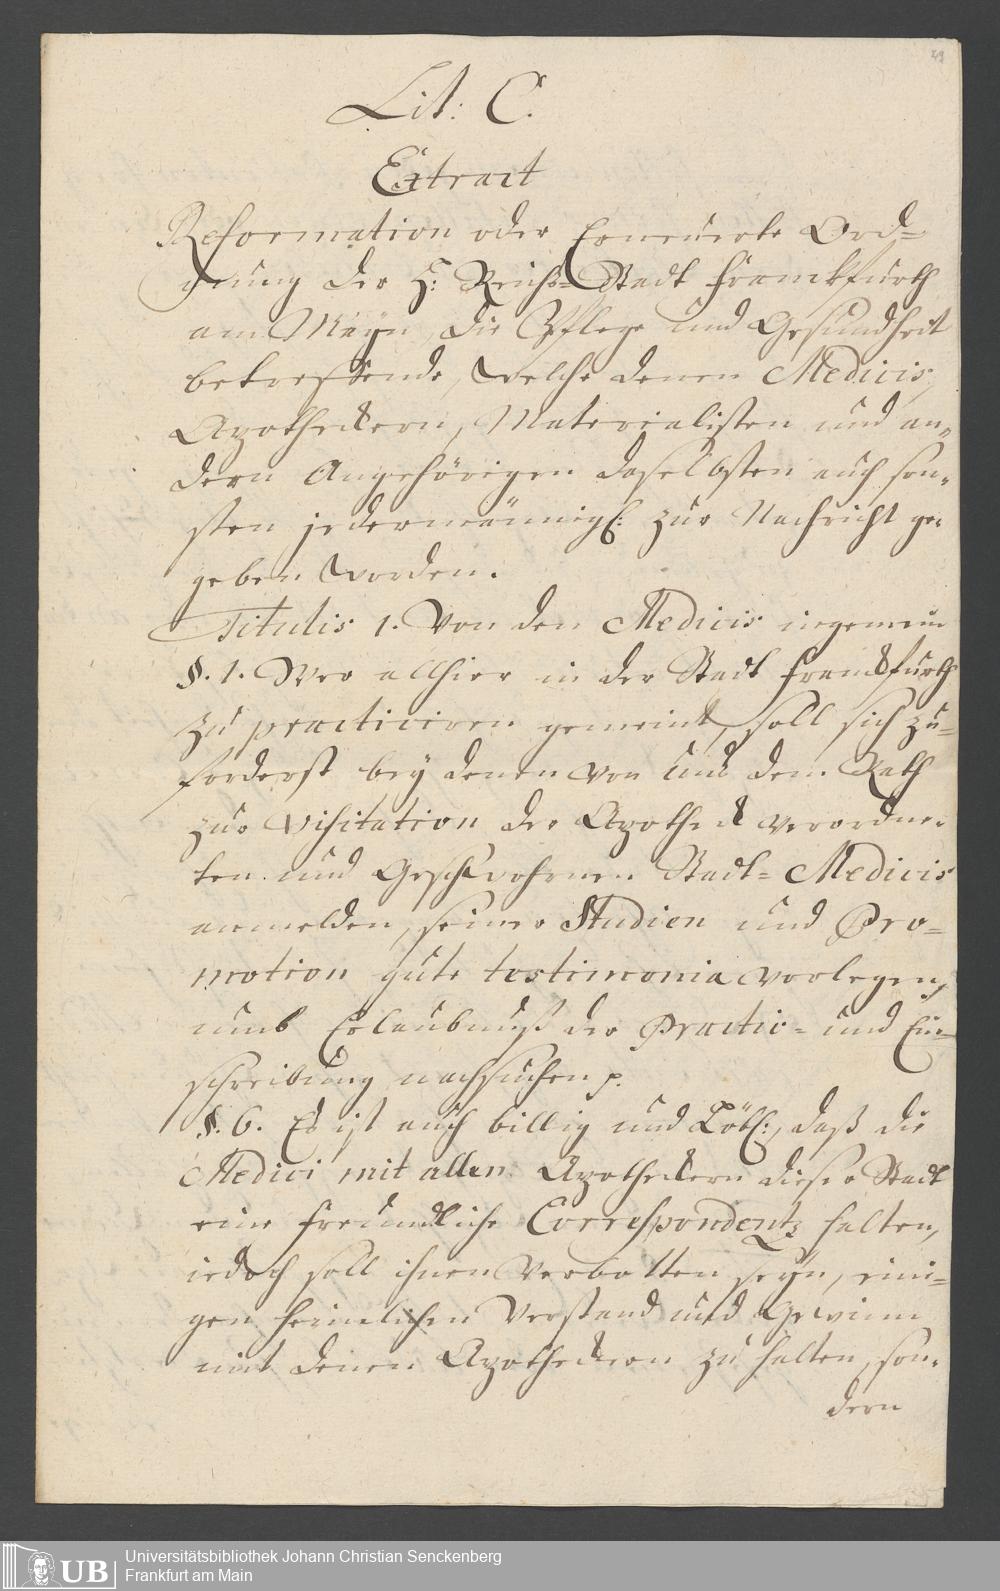 29
Lit: C.
Extract
Reformation oder Erneuerte Ord-
nung der H: Reichs-Stadt Franckfurth
am Mayn, die Pflege und Gesundheit
betreffende, welche denen Medicis,
Apotheckern, Materialisten und an-
dern Angehörigen daselbsten auch son-
sten jedermännigl: zur Nachricht ge-
geben worden.
Titulis 1. Von den Medicis ingemein
§. 1. Wer allhier in der Stadt Franckfurth
zu practiciren gemeint, soll sich zu-
forderst bey denen von und dem Rath
zur Visitation der Apotheck verordne-
ten und Geschwohrnen Stadt-Medicis
anmelden, seiner Studien und Pro-
motion gute testimonia vorlegen,
umb Erlaubnuß der Practic- und Ein-
schreibung nachsuchen p.
§. 6. Es ist auch billig und Löbl:, daß die
Medici mit allen Apotheckern dieser Stadt
eine freundliche Correspondentz halten,
iedoch soll ihnen Verbotten seyn, eini-
gen heimlichen Verstand und Gewinn
mit denen Apotheckern zu halten, son-
dern
UB
Universitätsbibliothek Johann Christian Senckenberg
Frankfurt am Main